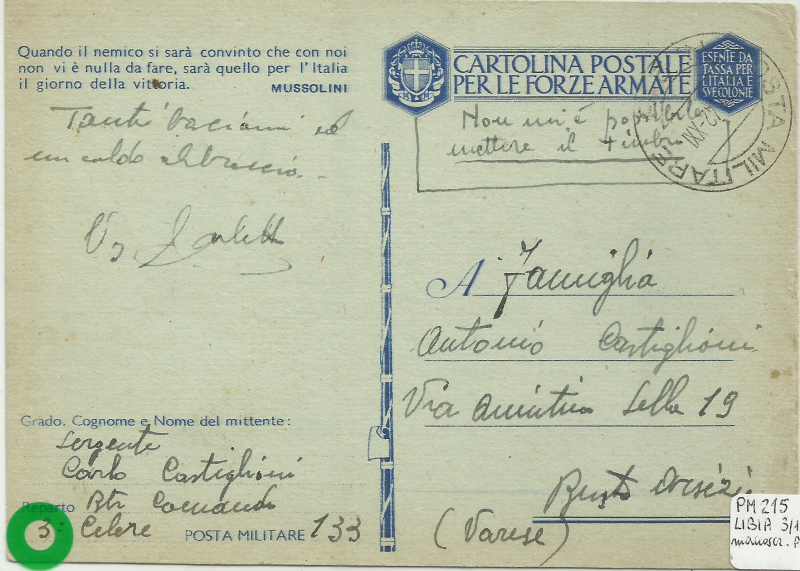 Quando il nemico si sarà convinto che con noi
non vi è nulla da fare, sarà quello per l'Italia
il giorno della vittoria.
MUSSOLINI
CARTOLINA POSTALE
PER LE FORZE ARMATE
ESENTE DA
TASSA PER
L'ITALIA E
SVE COLONIE
POSTA MILITARE
XXI
Non mi è possibile
mettere il timbro
Tanti bacioni ed
un caldo abbraccio.
A Famiglia
Antonio Castiglioni
Via Quintino Sella 19
Busto Arsizio
(Varese)
Grado. Cognome e Nome del mittente:
Sergente
Carlo Castiglioni
Reparto Btr Comando
3° Celere
POSTA MILITARE 133
PM 215
LIBIA
manoscr.